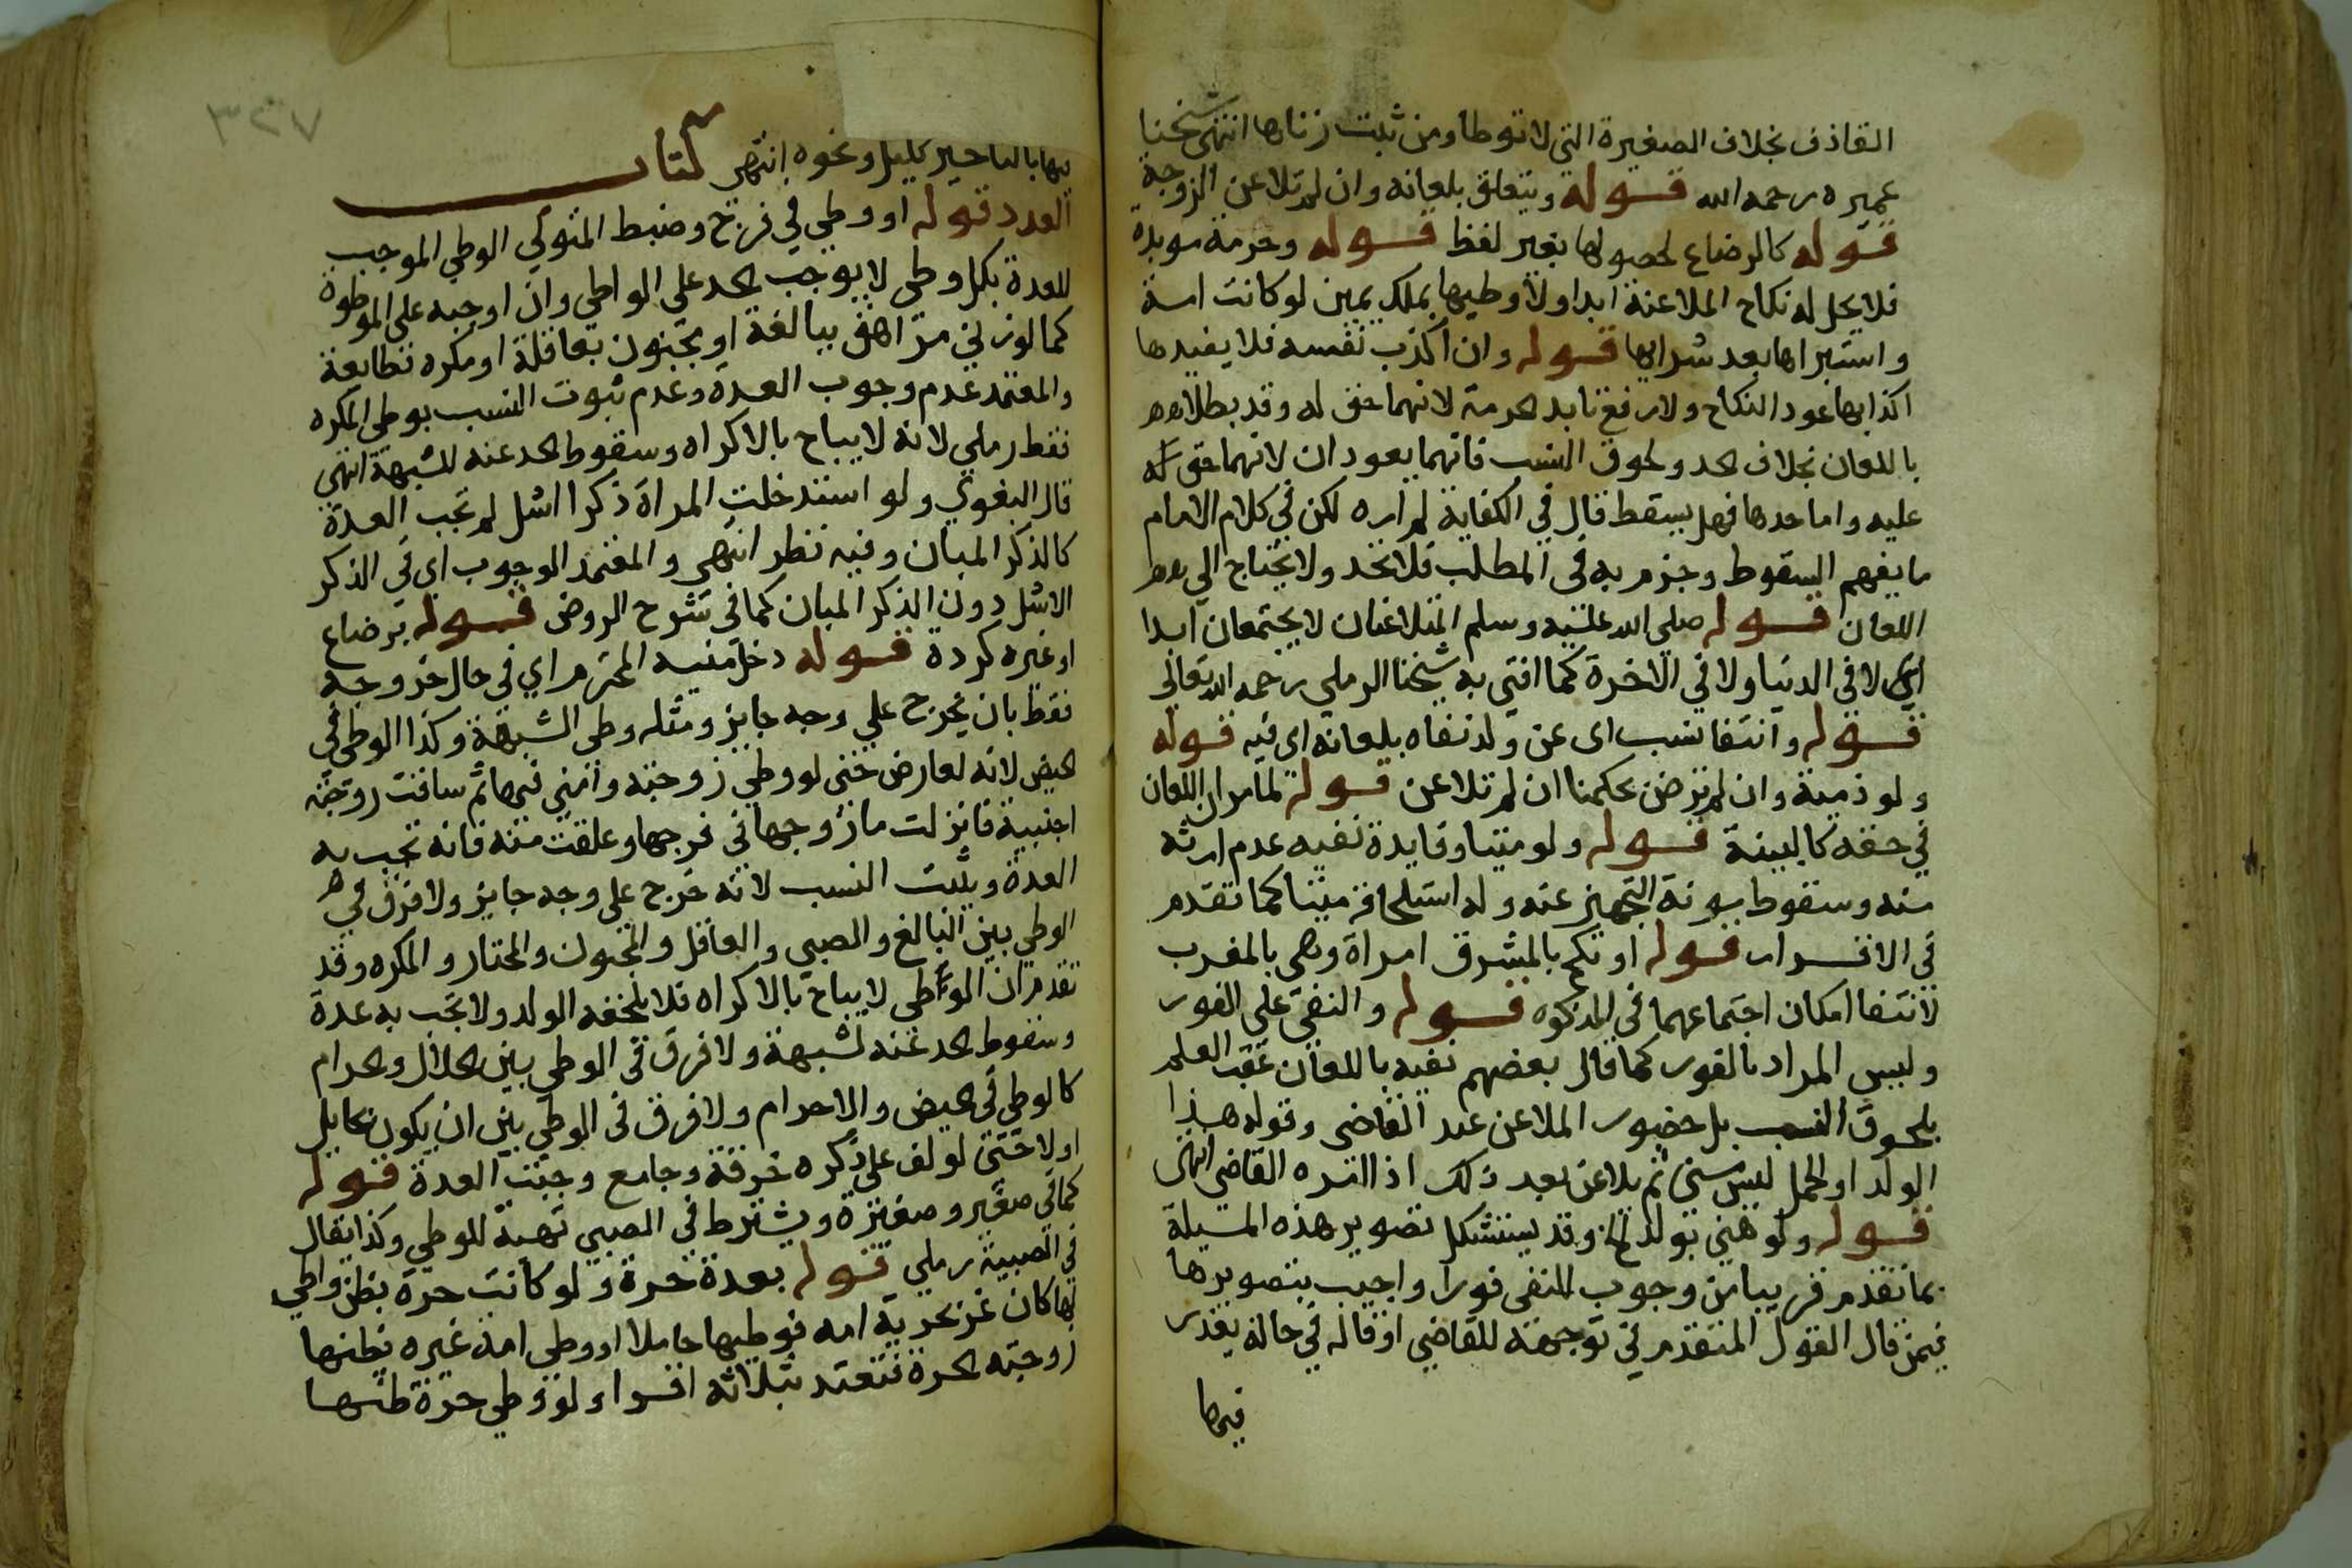 القاذف بخلاف الصغيرة التي لا توطا ومن ثبت زناها انتهى شيخنا
عميره رحمه الله قوله ويتعلق بلعانه وان لم تلاعن الزوجة
قوله كالرضاع لحصولها بغير لفظ قوله وحرمة موبدة
فلا يحل له نكاح الملاعنة ابدا ولا وطيها بملك يمين لو كانت امة
واستبراها بعد شرايها قوله وان اكذب نفسه فلا يفيدها
اكذابها عود النكاح ولا رفع تابد الحرمة لانهما حق له وقد بطلا
باللعان بخلاف الحد ولحوق النسب فانهما يعودان لانهما حق
عليه واما حدها فهل يسقط قال في الكفاية لم اره لكن في كلام الامام
ما يفهم السقوط وجزم به في المطلب فلا تحد ولا يحتاج الي
اللعان قوله صلى الله عليه وسلم المتلاعنان لا يجتمعان ابدا
اي لا في الدنيا ولا في الاخرة كما افتى به شيخنا الرملي رحمه الله تعالى
قوله وانتفا نسب اى عن ولد نفاه بلعانه اى فيه قوله
ولو ذمية وان لم ترض بحكمنا ان لم تلاعن قوله لما مر ان اللعان
في حقه كالبينة قوله ولو ميتا وفايدة نفيه عدم ارثه
منه وسقوط مونة التجهيز عنه وله استلحاقه ميتا كما تقدم
في الاقرار قوله او نكح بالمشرق امراة وهي بالمغرب
لانتفا امكان اجتماعهما في المذكوره قوله والنفي على الفور
وليس المراد بالفور كما قال بعضهم نفيه باللعان عقب العلم
بلحوق النسب بل حضور الملاعن عند القاضي وقوله هذا
الولد او الحمل ليس مني ثم يلاعن بعد ذلك اذا امره القاضي انتهى
قوله ولو هني بولد وقد يستشكل تصوير هذه المسيلة
بما تقدم قريبا من وجوب النفي فورا واجيب بتصويرها
فيمن قال القول المتقدم في توجهه للقاضي او قاله في حالة يعذر
فيها
٧٢٣
فيها بالتاخير كليل ونحوه انتهى كتاب
العدد قوله او وطي في فرج وضبط المتولي الوطي الموجب
للعدة بكل وطي لا يوجب الحد على الواطي وان اوجبه على الموطوة
كما لو زنى مراهق ببالغة او مجنون بعاقلة او مكره بطايعة
والمعتمد عدم وجوب العدة وعدم ثبوت النسب بوطي المكره
فقط رملي لانه لا يباح بالاكراه وسقوط الحد عنه للشبهة انتهى
قال البغوي ولو استدخلت المراة ذكرا اشل لم تجب العدة
كالذكر المبان وفيه نظر انتهى والمعتمد الوجوب اي في الذكر
الاشل دون الذكر المبان كما في شرح الروض قوله برضاع
او غيره كردة قوله دخل منيه المحترم اي في حال خروجه
فقط بان يخرج على وجه جايز ومثله وطي الشبهة وكذا الوطي في
الحيض لانه لعارض حتى لو وطي زوجته وامني فيها ثم ساقت زوجته
اجنبية فانزلت ما زوجها في فرجها وعلقت منه فانه تجب به
العدة ويثبت النسب لانه خرج على وجه جايز ولا فرق في
الوطي بين البالغ والصبي والعاقل والمجنون والمختار والمكره وقد
تقدم ان الوطي لا يباح بالاكراه فلا يلحقه الولد ولا تجب به عدة
وسقوط الحد عنه لشبهة ولا فرق في الوطي بين الحلال والحرام
كالوطي في الحيض والاحرام ولا فرق في الوطي بين ان يكون بحايل
او لا حتى لو لف على ذكره خرقة وجامع وجبت العدة قوله
كما في صغير وصغيرة ويشترط في الصبي تهية للوطي وكذا يقال
في الصبية رملي قوله بعدة حرة ولو كانت حرة بظن واطي
لها كان غر بحرية امه فوطيها حاملا او وطي امة غيره بظنها
زوجته الحرة فتعتد بثلاثة اقراء ولو وطي حرة ظنها